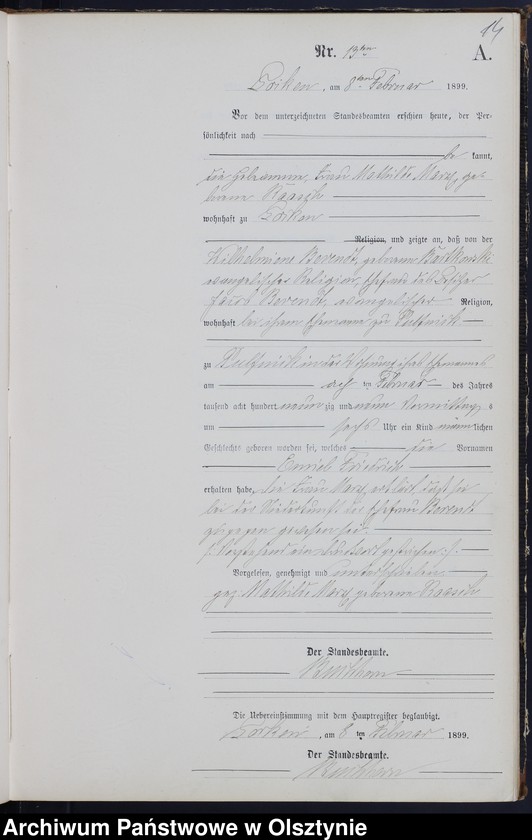 14
Nr. 13ten A.
am 8ten Februar 1899.
Vor dem unterzeichneten Standesbeamten erschien heute, der Per-
sönlichkeit nach
be kannt,
die Hebamme, Frau Mathilde Marx, ge-
borene Raasch
wohnhaft zu
Religion, und zeigte an, daß von der
Wilhelmine Berendt, geborene
evangelischer Religion, Ehefrau des
Berendt, evangelischer Religion,
wohnhaft bei ihrem Ehemanne zu
zu in der Wohnung ihres Ehemannes
am acht ten Februar des Jahres
tausend acht hundert neun zig und neun Vormittags
um sechs Uhr ein Kind männ lichen
Geschlechts geboren worden sei, welches die Vornamen
Emiel Friedrich
erhalten habe, die Frau Marx erklärt, daß sie
bei der Niederkunft der Ehefrau Berendt
zugegen gewesen sei.
Vorstehend ein Druckwort gestrichen
Vorgelesen, genehmigt und unterschrieben
gez. Mathilde Marx, geborene Raasch
Der Standesbeamte.
Die Uebereinstimmung mit dem Hauptregister beglaubigt.
am 8 ten Februar 1899.
Der Standesbeamte.
Archiwum Państwowe w Olsztynie